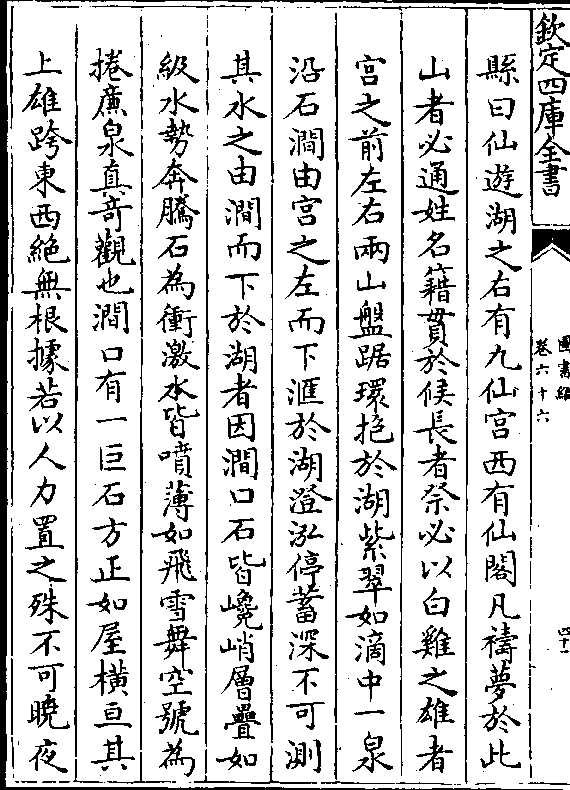 欽定四庫全書
圖書編
卷六十六
四十一
縣曰仙遊湖之右有九仙宫西有仙閣凡禱夢於此
山者必通姓名籍貫於候長者祭必以白雞之雄者
宫之前左右兩山盤踞環抱於湖紫翠如滴中一泉
沿石澗由宫之左而下滙於湖澄泓停蓄深不可測
其水之由澗而下於湖者因澗口石皆巉峭層疊如
級水勢奔騰石為衝激水皆噴薄如飛雪舞空號為
捲簾泉真竒觀也澗口有一巨石方正如屋横亘其
上雄跨東西絶無根據若以人力置之殊不可曉夜